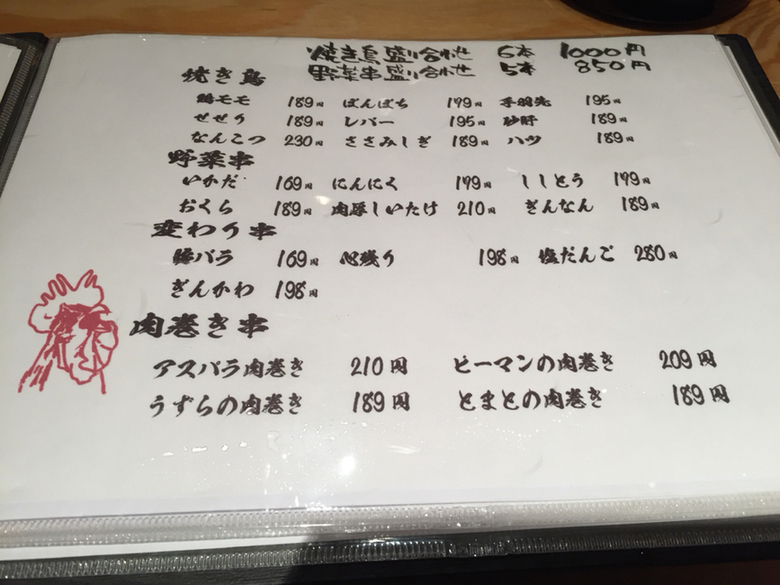 焼き鳥盛り合わせ 6本 1000円
野菜串盛り合わせ 5本 850円
焼き鳥
鶏モモ 189円 ぼんぼち 179円 手羽先 195円
せせり 189円 レバー 195円 砂肝 189円
なんこつ 230円 ささみしぎ 189円 ハツ 189円
野菜串
いかだ 169円 にんにく 179円 ししとう 179円
おくら 189円 肉厚しいたけ 210円 ぎんなん 189円
変わり串
豚バラ 169円 心残り 198円 塩だんご 280円
ぎんかわ 198円
肉巻き串
アスパラ肉巻き 210円 ピーマンの肉巻き 209円
うずらの肉巻き 189円 とまとの肉巻き 189円